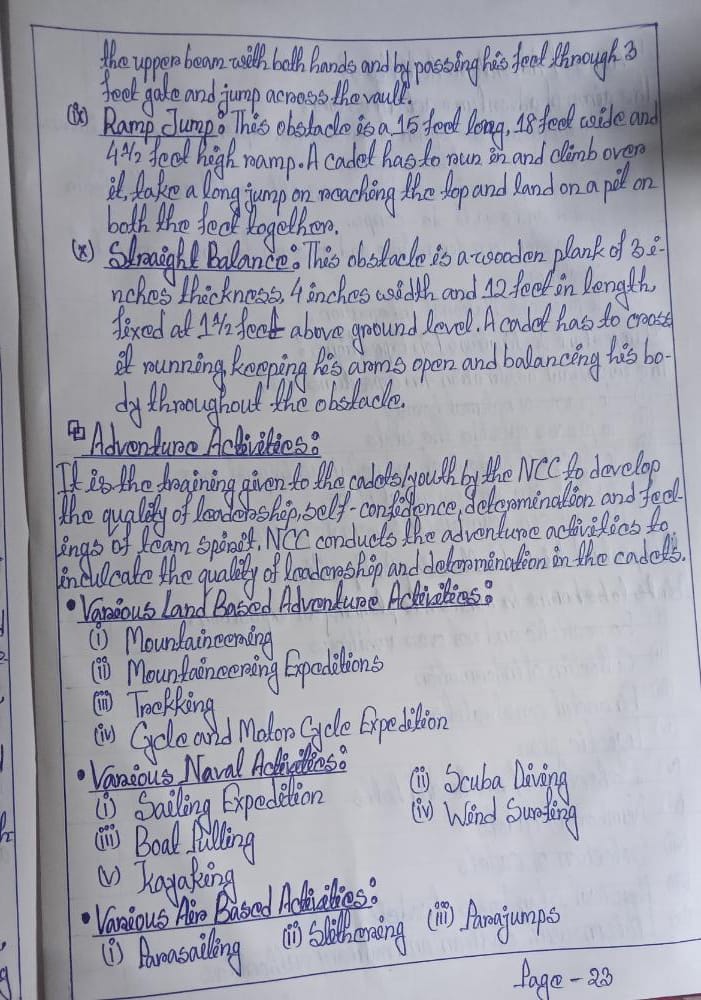 the upper beam with both hands and by passing his feet through 3
feet gate and jump across the vault.
(ix) Ramp Jump: This obstacle is a 15 feet long, 18 feet wide and
4 1/2 feet high ramp. A cadet has to run in and climb over
it, take a long jump on reaching the top and land on a pit on
both the feet together.
(x) Straight Balance: This obstacle is a wooden plank of 3 i-
nches thickness, 4 inches width and 12 feet in length,
fixed at 1 1/2 feet above ground level. A cadet has to cross
it running, keeping his arms open and balancing his bo-
dy throughout the obstacle.
Adventure Activities:
It is the training given to the cadets/youth by the NCC to develop
the quality of leadership, self-confidence, determination and feel-
ings of team spirit. NCC conducts the adventure activities to
inculcate the quality of leadership and determination in the cadets.
• Various Land Based Adventure Activities:
(i) Mountaineering
(ii) Mountaineering Expeditions
(iii) Trekking
(iv) Cycle and Motor Cycle Expedition
• Various Naval Activities:
(i) Sailing Expedition (ii) Scuba Diving
(iii) Boat Pulling (iv) Wind Surfing
(v) Kayaking
• Various Air Based Activities:
(i) Parasailing (ii) Slithering (iii) Parajumps
Page - 23